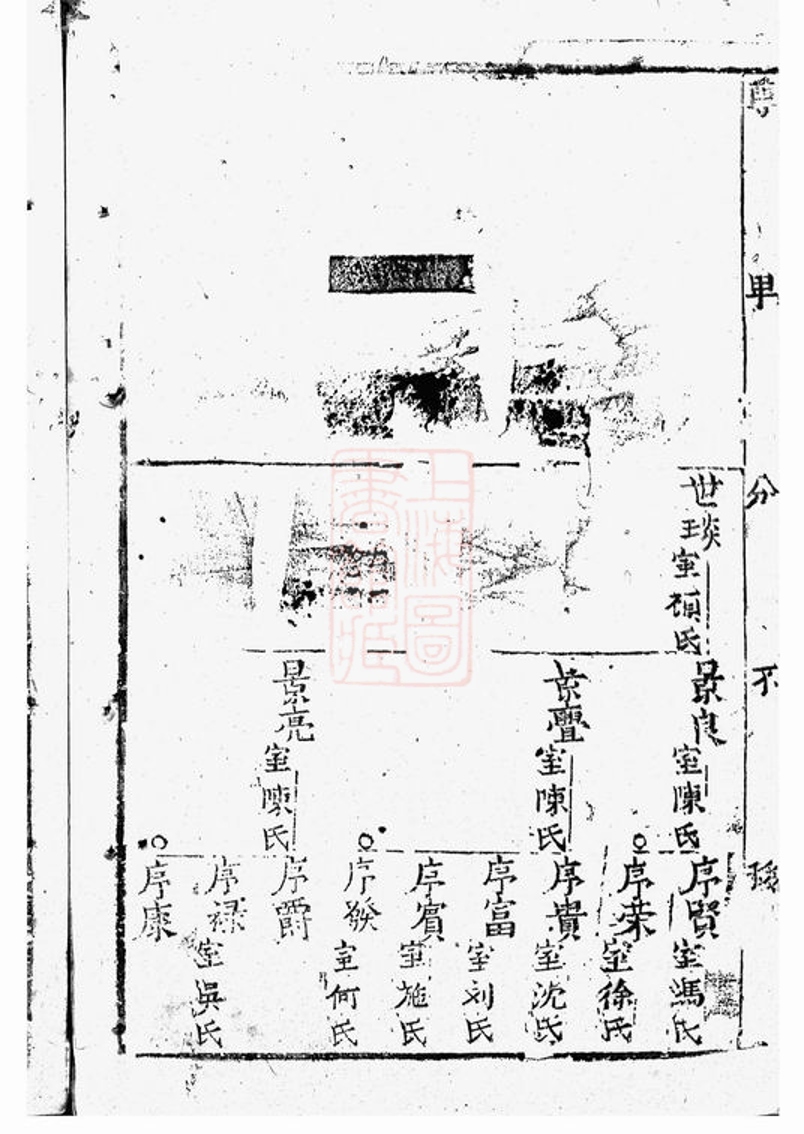 卑
分
不
世琰
室顧氏
景良
室陳氏
景亹
室陳氏
景亮
室陳氏
序賢
室馮氏
序荣
室徐氏
序貴
室沈氏
序富
室刘氏
序賓
室施氏
序發
室何氏
序爵
序禄
室吳氏
序康
上海圖書館藏